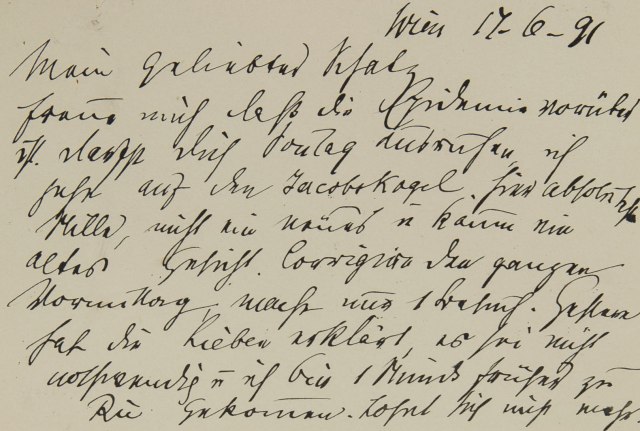 Wien 17-6-91
Mein geliebter Schatz
freue mich daß die Epidemie vorüber
ist. darfst dich Sontag ausruhen, ich
gehe auf den Jacobskogel, hier absolute
Stille, nicht ein neues u kaum ein
altes Gesicht. Corrigire den ganzen
Vormittag, mache nur 1 Besuch. Gestern
hat die erklärt, es sei nicht
nothwendig u ich bin 1 Stunde früher zu
gekommen. Lohnt sich nicht mehr